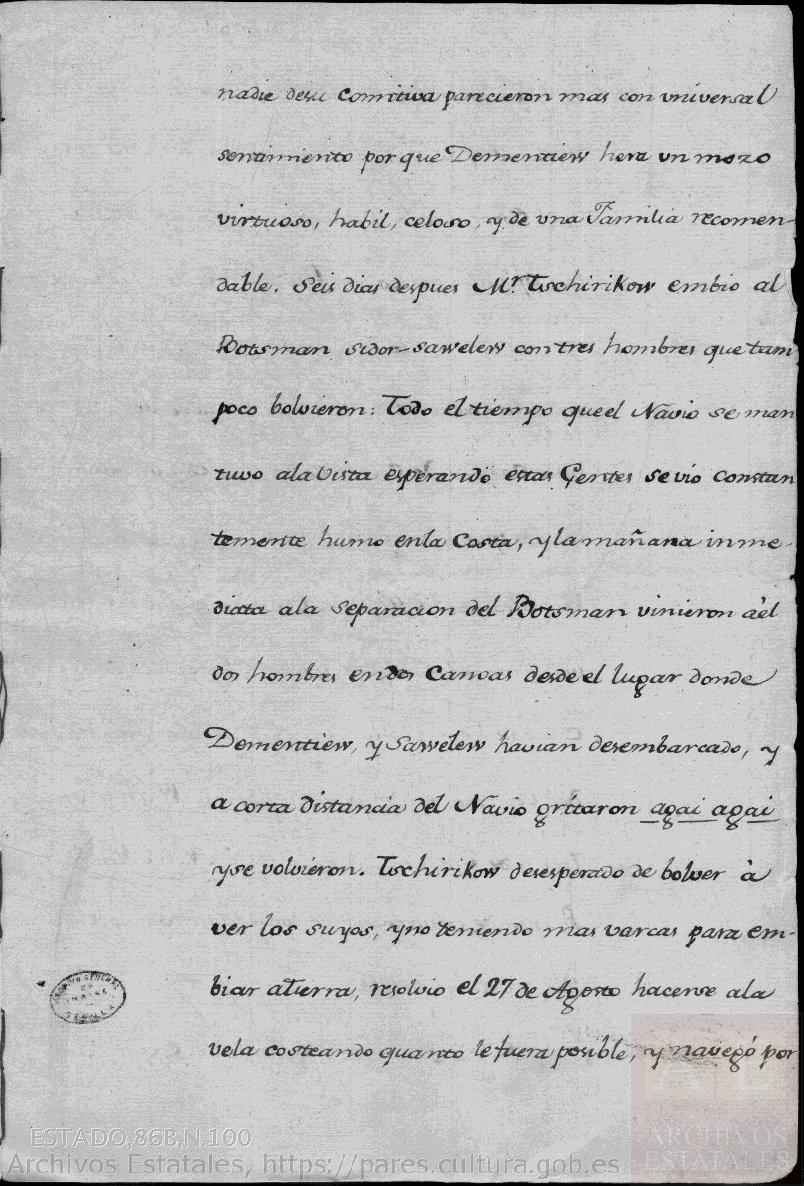 nadie desu comitiva parecieron mas con vniversal
sentimiento por que Dementiew hera vn mozo
virtuoso, habil, celoso, y de vna Familia recomen-
dable. Seis dias despues Mr. Tschirikow embio al
Botsman Sidor-Sawelew con tres hombres que tam
poco bolvieron: Todo el tiempo que el Navio se man
tuvo ala vista esperando estas Gentes se vio constan
temente humo enla Costa, y la mañana inme-
diata ala separacion del Botsman vinieron à èl
dos hombres en dos Canoas desde el lugar donde
Dementiew, y Sawelew havian desembarcado, y
a corta distancia del Navio gritaron agai agai
y se volvieron. Tschirikow desesperado de bolver à
ver los suyos, y no teniendo mas varcas para em-
biar a tierra, resolvio el 27 de Agosto hacerse ala
vela costeando quanto le fuera posible, y navegó por
ARCHIVO GENERAL
DE
INDIAS
SEVILLA
ESTADO,86B,N.100
Archivos Estatales, https://pares.cultura.gob.es
A E
ARCHIVOS
ESTATALES